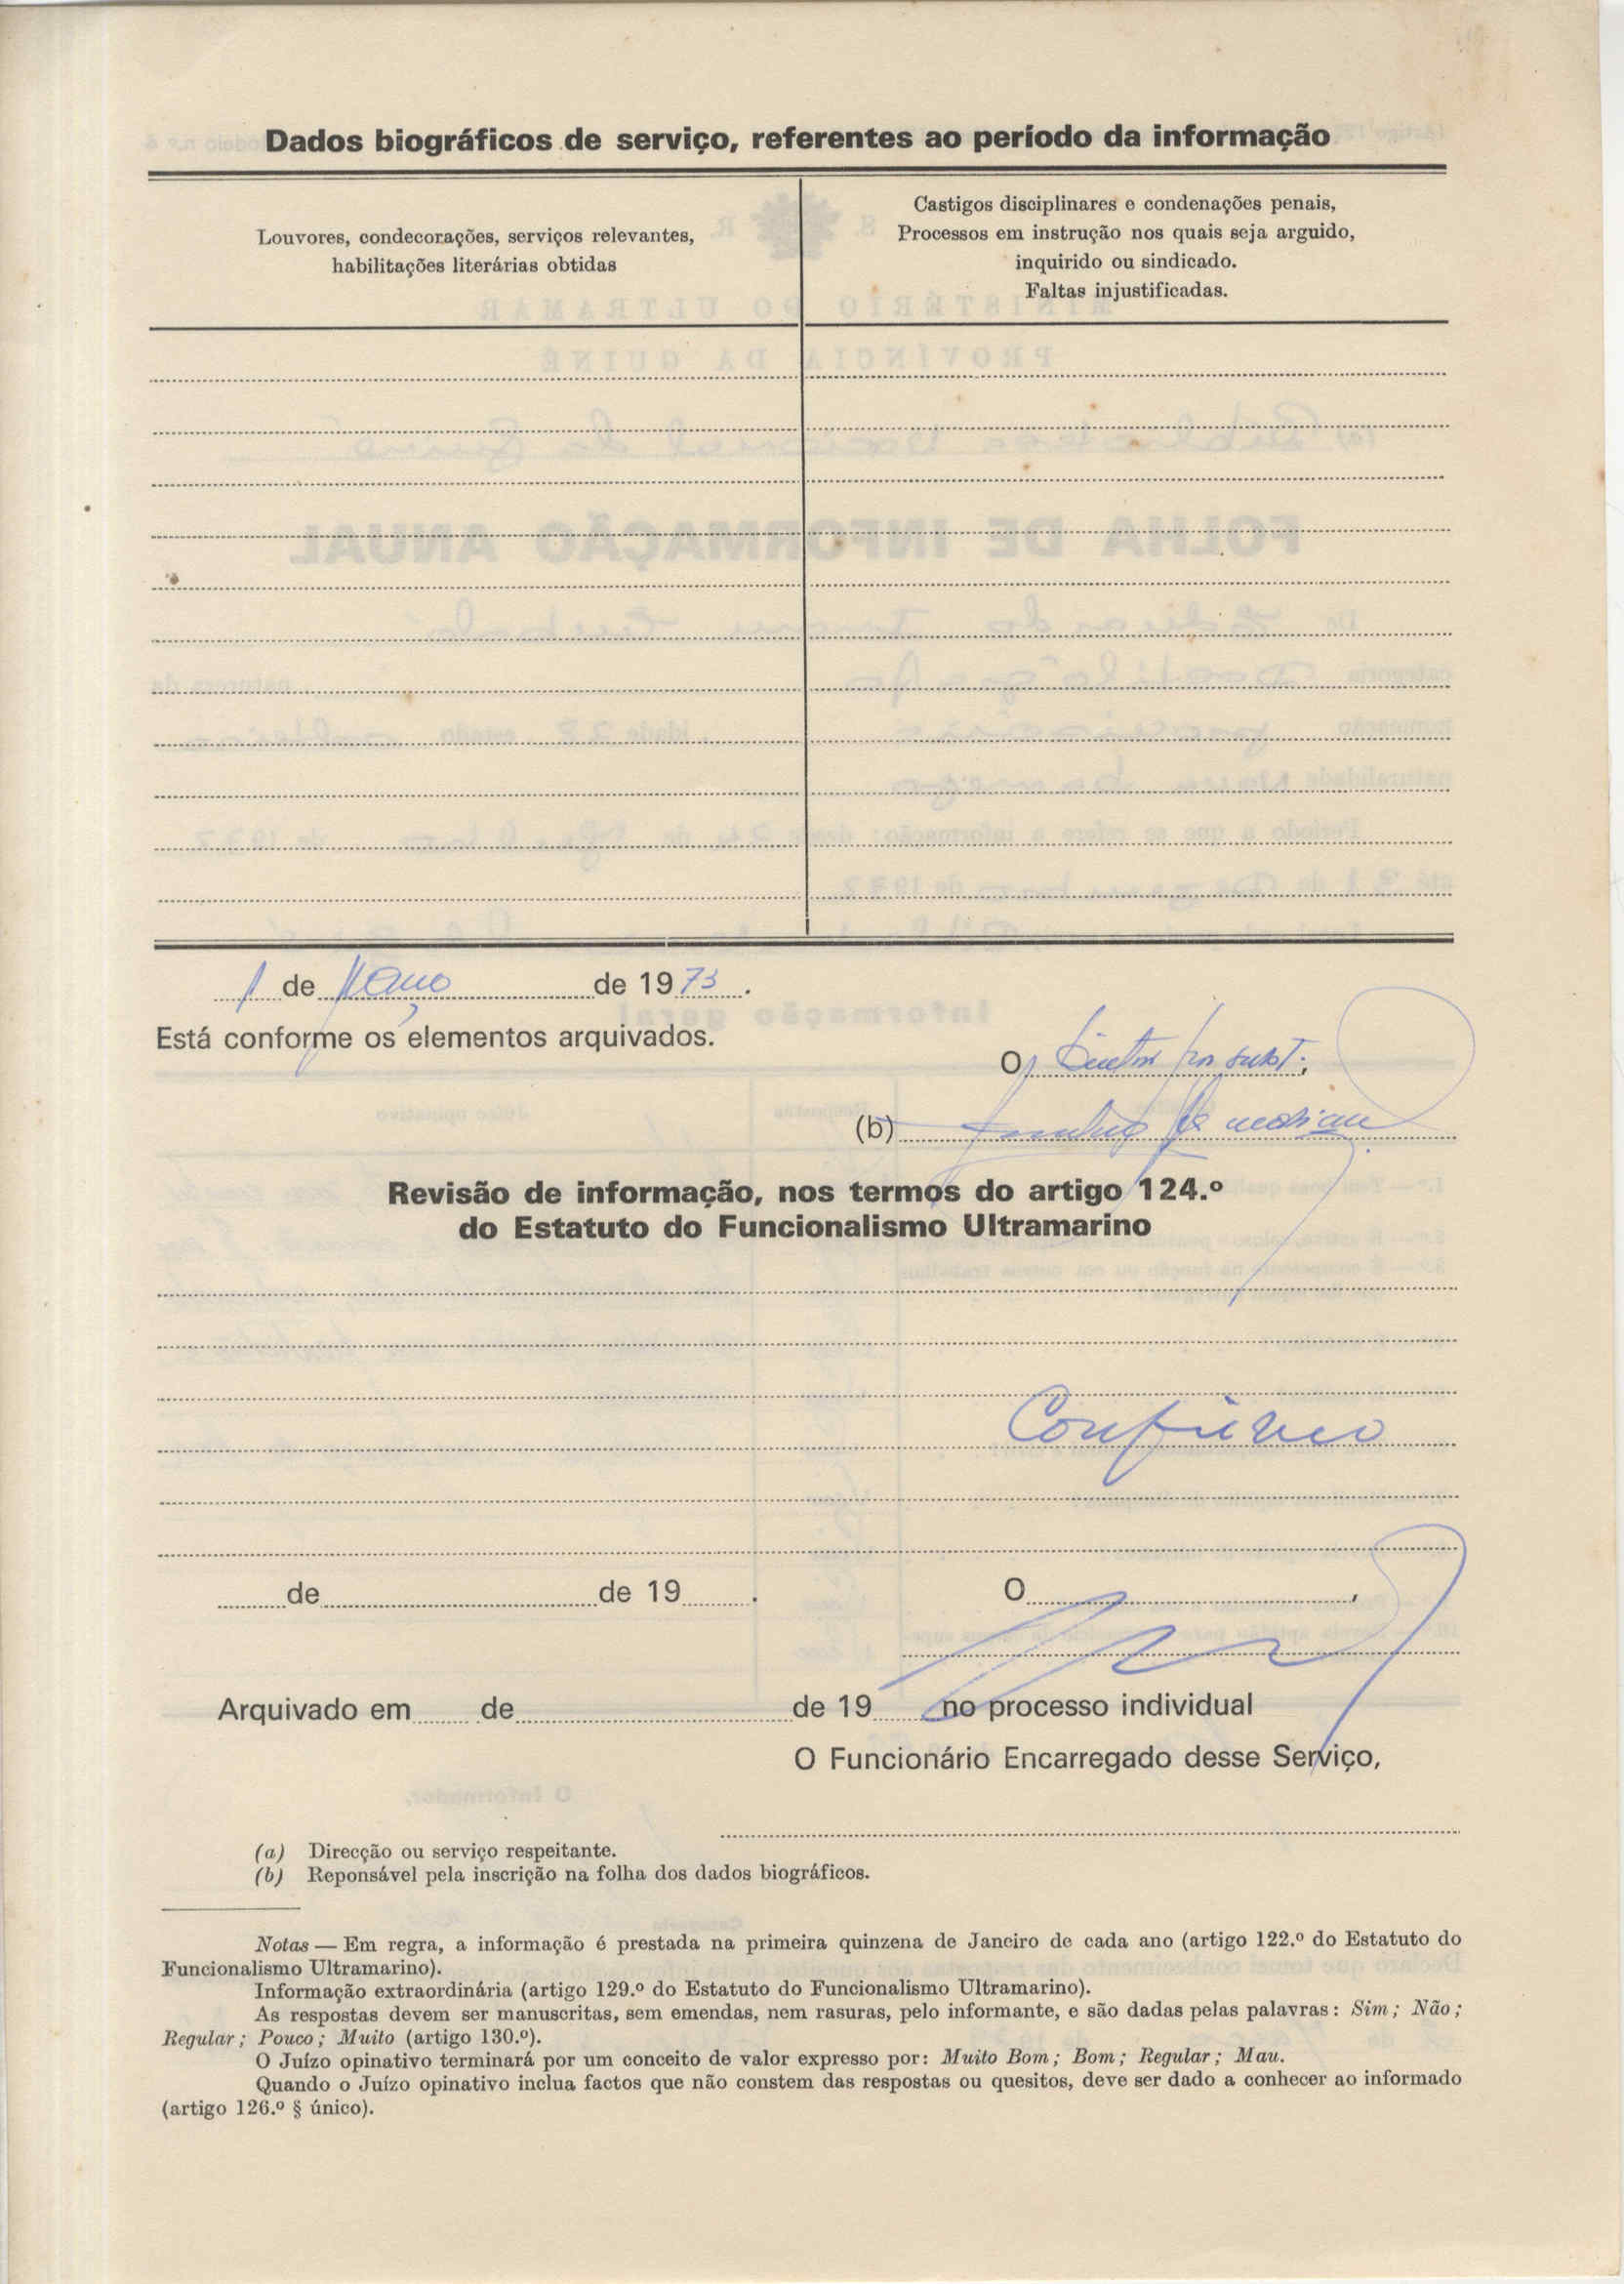 Dados biográficos de serviço, referentes ao período da informação
Louvores, condecorações, serviços relevantes,
habilitações literárias obtidas
Castigos disciplinares e condenações penais,
Processos em instrução nos quais seja arguido,
inquirido ou sindicado.
Faltas injustificadas.
1 de Março de 1973.
Está conforme os elementos arquivados.
O Director por subst.,
(b)
Revisão de informação, nos termos do artigo 124.º
do Estatuto do Funcionalismo Ultramarino
Confirmo
de de 19 .
O ,
Arquivado em de de 19 no processo individual
O Funcionário Encarregado desse Serviço,
(a) Direcção ou serviço respeitante.
(b) Reponsável pela inscrição na folha dos dados biográficos.
Notas — Em regra, a informação é prestada na primeira quinzena de Janeiro de cada ano (artigo 122.º do Estatuto do
Funcionalismo Ultramarino).
Informação extraordinária (artigo 129.º do Estatuto do Funcionalismo Ultramarino).
As respostas devem ser manuscritas, sem emendas, nem rasuras, pelo informante, e são dadas pelas palavras: Sim; Não;
Regular; Pouco; Muito (artigo 130.º).
O Juízo opinativo terminará por um conceito de valor expresso por: Muito Bom; Bom; Regular; Mau.
Quando o Juízo opinativo inclua factos que não constem das respostas ou quesitos, deve ser dado a conhecer ao informado
(artigo 126.º § único).